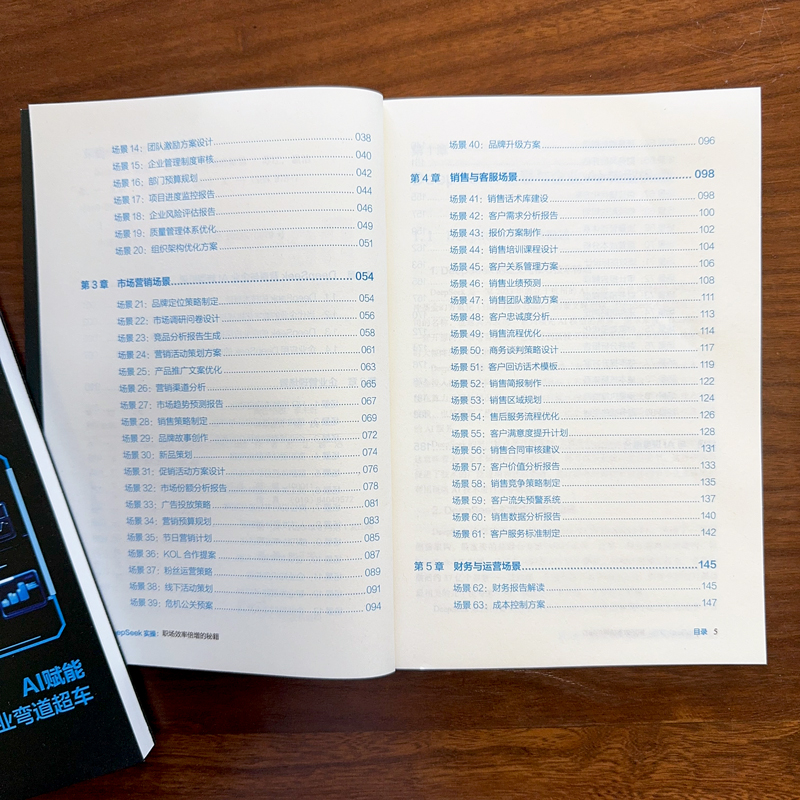 场景 14：团队激励方案设计 038
场景 15：企业管理制度审核 040
场景 16：部门预算规划 042
场景 17：项目进度监控报告 044
场景 18：企业风险评估报告 046
场景 19：质量管理体系优化 049
场景 20：组织架构优化方案 051
第 3 章 市场营销场景 054
场景 21：品牌定位策略制定 054
场景 22：市场调研问卷设计 056
场景 23：竞品分析报告生成 058
场景 24：营销活动策划方案 061
场景 25：产品推广文案优化 063
场景 26：营销渠道分析 065
场景 27：市场趋势预测报告 067
场景 28：销售策略制定 069
场景 29：品牌故事创作 072
场景 30：新品策划 074
场景 31：促销活动方案设计 076
场景 32：市场份额分析报告 078
场景 33：广告投放策略 081
场景 34：营销预算规划 083
场景 35：节日营销计划 085
场景 36：KOL 合作提案 087
场景 37：粉丝运营策略 089
场景 38：线下活动策划 091
场景 39：危机公关预案 094
epSeek 实操：职场效率倍增的秘籍
场景 40：品牌升级方案 096
第 4 章 销售与客服场景 098
场景 41：销售话术库建设 098
场景 42：客户需求分析报告 100
场景 43：报价方案制作 102
场景 44：销售培训课程设计 104
场景 45：客户关系管理方案 106
场景 46：销售业绩预测 108
场景 47：销售团队激励方案 111
场景 48：客户忠诚度分析 113
场景 49：销售流程优化 114
场景 50：商务谈判策略设计 117
场景 51：客户回访话术模板 119
场景 52：销售简报制作 122
场景 53：销售区域规划 124
场景 54：售后服务流程优化 126
场景 55：客户满意度提升计划 128
场景 56：销售合同审核建议 131
场景 57：客户价值分析报告 133
场景 58：销售竞争策略制定 135
场景 59：客户流失预警系统 137
场景 60：销售数据分析报告 140
场景 61：客户服务标准制定 142
第 5 章 财务与运营场景 145
场景 62：财务报告解读 145
场景 63：成本控制方案 147
目录 5
AI赋能
业弯道超车